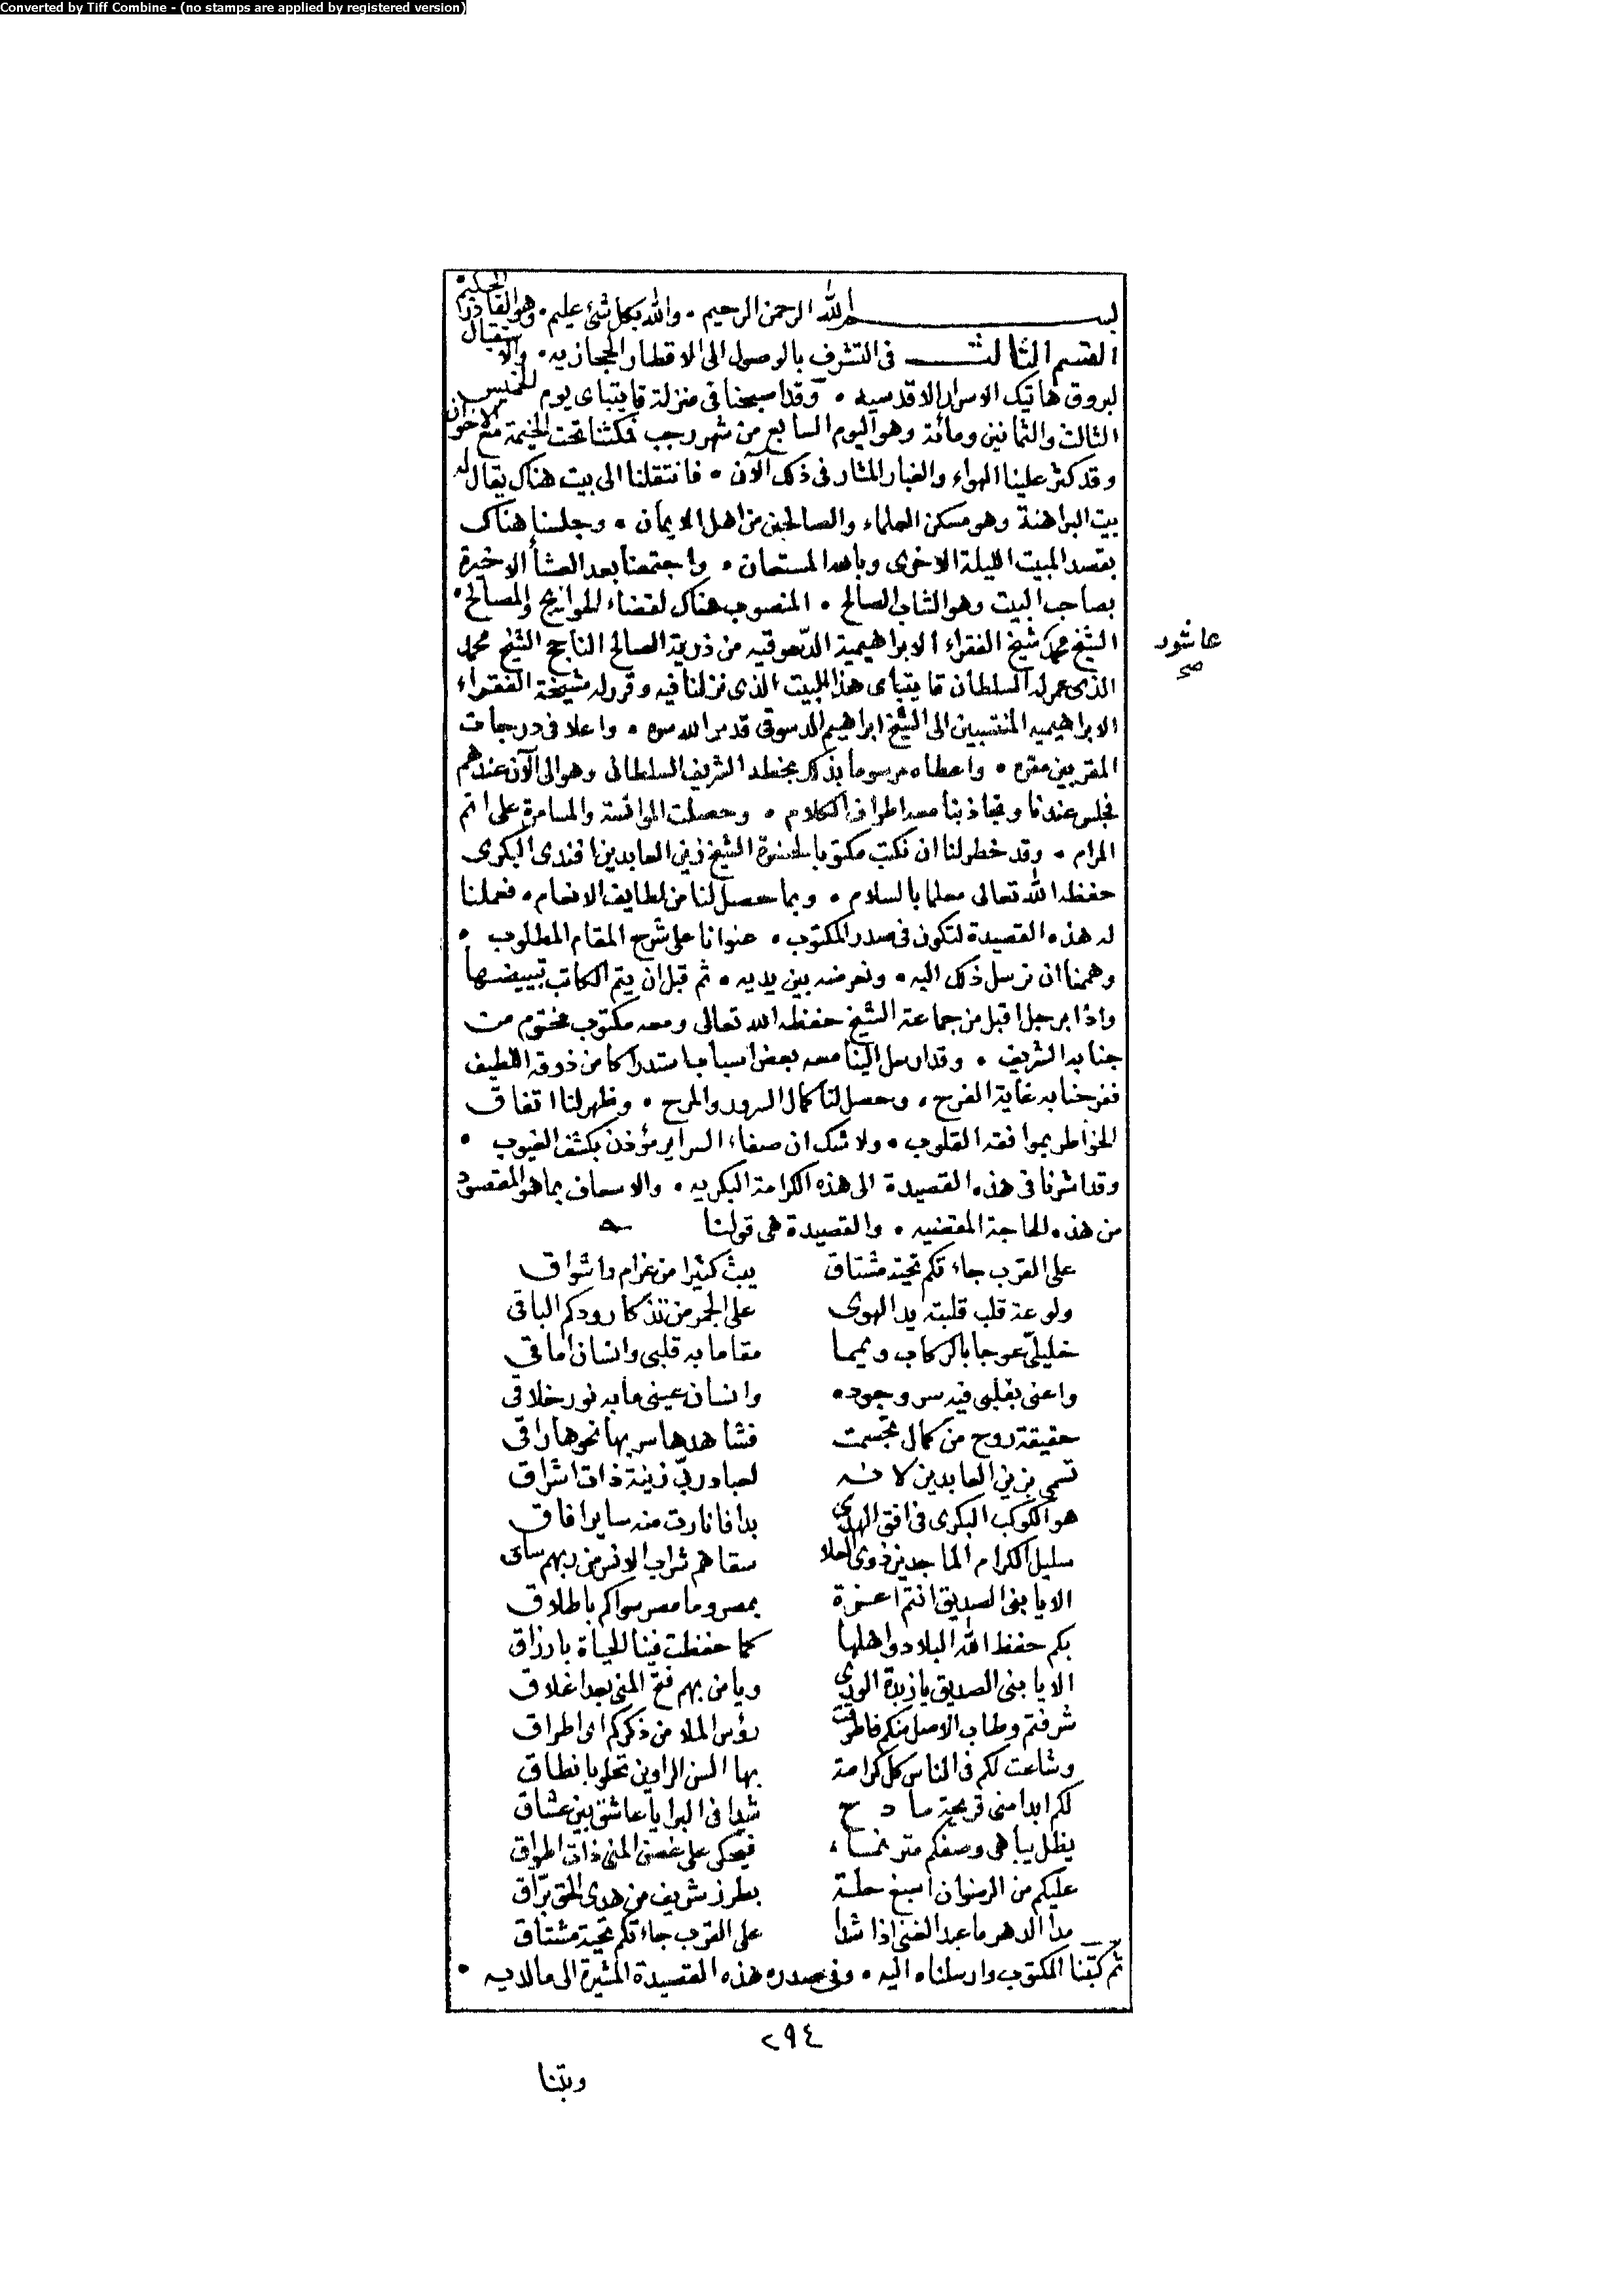 Converted by Tiff Combine - (no stamps are applied by registered version)
بسم الله الرحمن الرحيم • والله بكل شئ عليم • وهو القادر الحكيم •
القسم الثالث في التشرف بالوصول الى الاقطار الحجازيه • والاستقبال
لبروق هاتيك الاسرار الاقدسيه • وقد اصبحنا في منزلة قايتباى يوم الخميس
الثالث والثمانين ومائة وهو اليوم السابع من شهر رجب فمكثنا تحت الخيمة مع الاخوان
وقد كثر علينا الهواء والغبار المثار في ذلك الآن • فانتقلنا الى بيت هناك يقال له
بيت البراهنة وهو مسكن العلماء والصالحين من اهل الايمان • وجلسنا هناك
بقصد المبيت الليلة الاخرى وبالله المستعان • واجتمعنا بعد العشأ الاخيرة
بصاحب البيت وهو الشاب الصالح • المنصوب هناك لقضاء الحوايج والمصالح •
الشيخ محمد شيخ الفقراء الابراهيمية الدسوقيه من ذرية الصالح الناجح الشيخ محمد
عاشور
صح
الذى عمر له السلطان قايتباى هذا البيت الذى نزلنا فيه وقرر له مشيخة الفقراء
الابراهيميه المنتسبين الى الشيخ ابراهيم الدسوقي قدس الله سره • واعلا في درجات
المقربين مقره • واعطاه مرسوما بذلك بخطه الشريف السلطانى وهو الى الآن عندهم
فجلس عندنا وتجاذبنا معه اطراف الكلام • وحصلت الموانسة والمسامرة على اتم
المرام • وقد خطر لنا ان نكتب مكتوبا لحضرة الشيخ زين العابدين افندى البكرى
حفظه الله تعالى معلما بالسلام • وبما حصل لنا من لطايف الانعام • فعملنا
له هذه القصيدة لتكون في صدر المكتوب • عنوانا على شرح المقام المطلوب •
وهممنا ان نرسل ذلك اليه • ونعرضه بين يديه • ثم قبل ان يتم الكاتب تبييضها
واذا برجل اقبل من جماعة الشيخ حفظه الله تعالى ومعه مكتوب مختوم من
جنابه الشريف • وقد ارسل الينا معه بعض اسباب استدراكا من ذوقه اللطيف
ففرحنا به غاية الفرح • وحصل لنا كمال السرور والمرح • وظهر لنا اتفاق
الخواطر بموافقة القلوب • ولا شك ان صفاء السراير مؤذن بكشف الغيوب •
وقد اشرنا في هذه القصيدة الى هذه الكرامة البكريه • والاسعاف بما هو المقصود
من هذه الحاجة المقضيه • والقصيدة هى قولنا
على القرب جاءتكم تحية مشتاق يبث كثيرا من غرام واشواق
ولوعة قلب قلبته يد الهوى على الجمر من تذكار ودكم الباقى
خليلىّ عوجا بالركاب ويمما مقاما به قلبى وانسان اماقى
واعنى بقلبى فيه سر وجوده وانسان عينى ما به نور خلاقى
حقيقة روح من كمال تجسمت فشاهدها سر بها نحوها راقى
تسمى بزين العابدين لانه لعباد ربّى زينة ذات اشراق
هو الكوكب البكرى في افق الهدى بدا فانارت منه ساير افاق
سليل الكرام الماجدين ذوى العلا سقاهم شراب الانس من ربهم ساقى
الا يا بنى الصديق انتم اعزة بمصر وما مصر سواكم باطلاق
بكم حفظ الله البلاد واهلها كما حفظت فينا الحياة بارزاق
الا يا بنى الصديق يا زبدة الورى ويا من بهم فتح المنى بعد اغلاق
شرفتم وطاب الاصل منكم فاطرقت رؤس الملا من ذكركم اى اطراق
وشاعت لكم في الناس كل كرامة بها السن الراوين تحلو بانطاق
لكم ابدا منى قريحة مادح شدا في البرايا عاشق بين عشاق
يظل يباهى وصفكم مترنما فيحكى على غصن المنى ذات اطواق
عليكم من الرضوان اسبغ حلة بطرز شريف من هدى الحق برّاق
مدا الدهر ما عبد الغنى اذا شدا على القرب جاءتكم تحية مشتاق
ثم كتبنا المكتوب وارسلناه اليه • وفي صدره هذه القصيدة المشيرة الى ما لديه •
٢٩٤
وبتنا